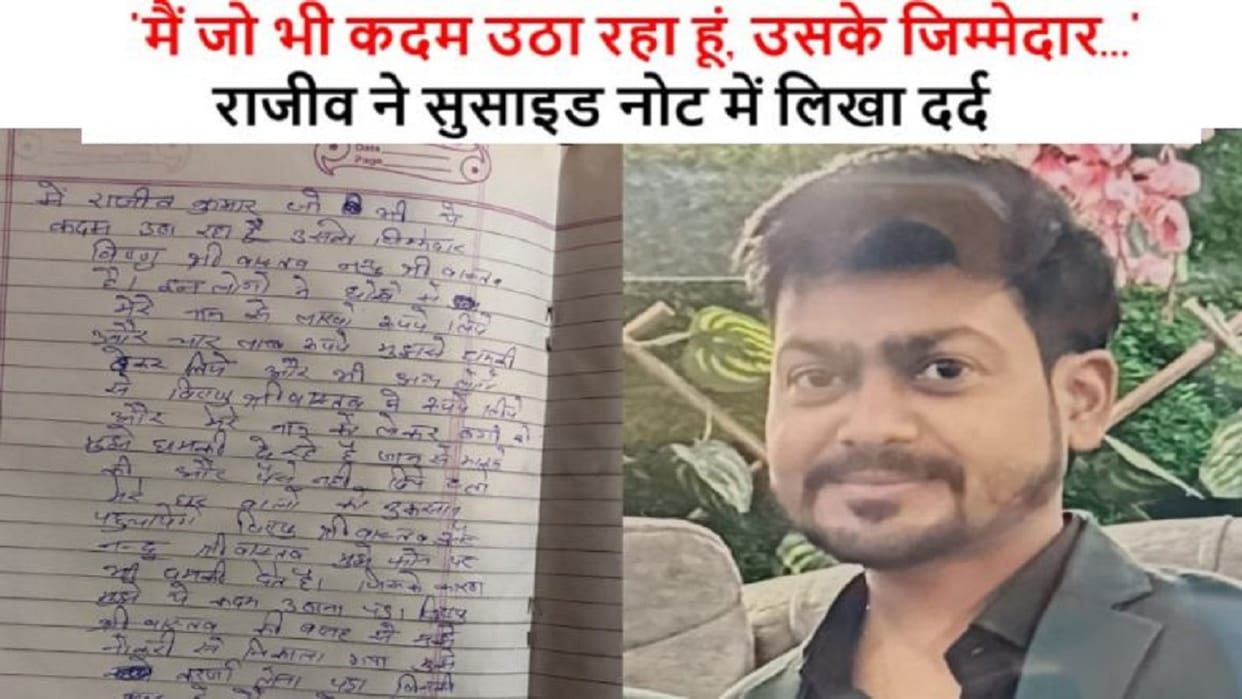 'मैं जो भी कदम उठा रहा हूं, उसके जिम्मेदार...'
राजीव ने सुसाइड नोट में लिखा दर्द
Date
Page
में राजीव कुमार जो भी ये
कदम उठा रहा है उसके जिम्मेदार
विष्णु श्री वास्तव नन्दु श्री वास्तव
है। इन लोगो ने धोखे से
मेरे नाम से लाखो रूपये लिये
और चार लाख रूपये मुझसे
लिये और भी अन्य
से विष्णु श्रीवास्तव ने रूपये लिये
और मेरे नाम
मुझे धमकी दे रहे है जान से मारने
की और पैसे नही दिये
मेरे घर वालो को नुकसान
विष्णु श्री वास्तव
नन्दु श्री वास्तव मुझे फोन पर
भी धमकी देते है। जिसके कारण
मुझे ये कदम उठाना पड़ा
श्री वास्तव की वजह से मुझे
नौकरी से निकाला गया मुझे
लेना पड़ा